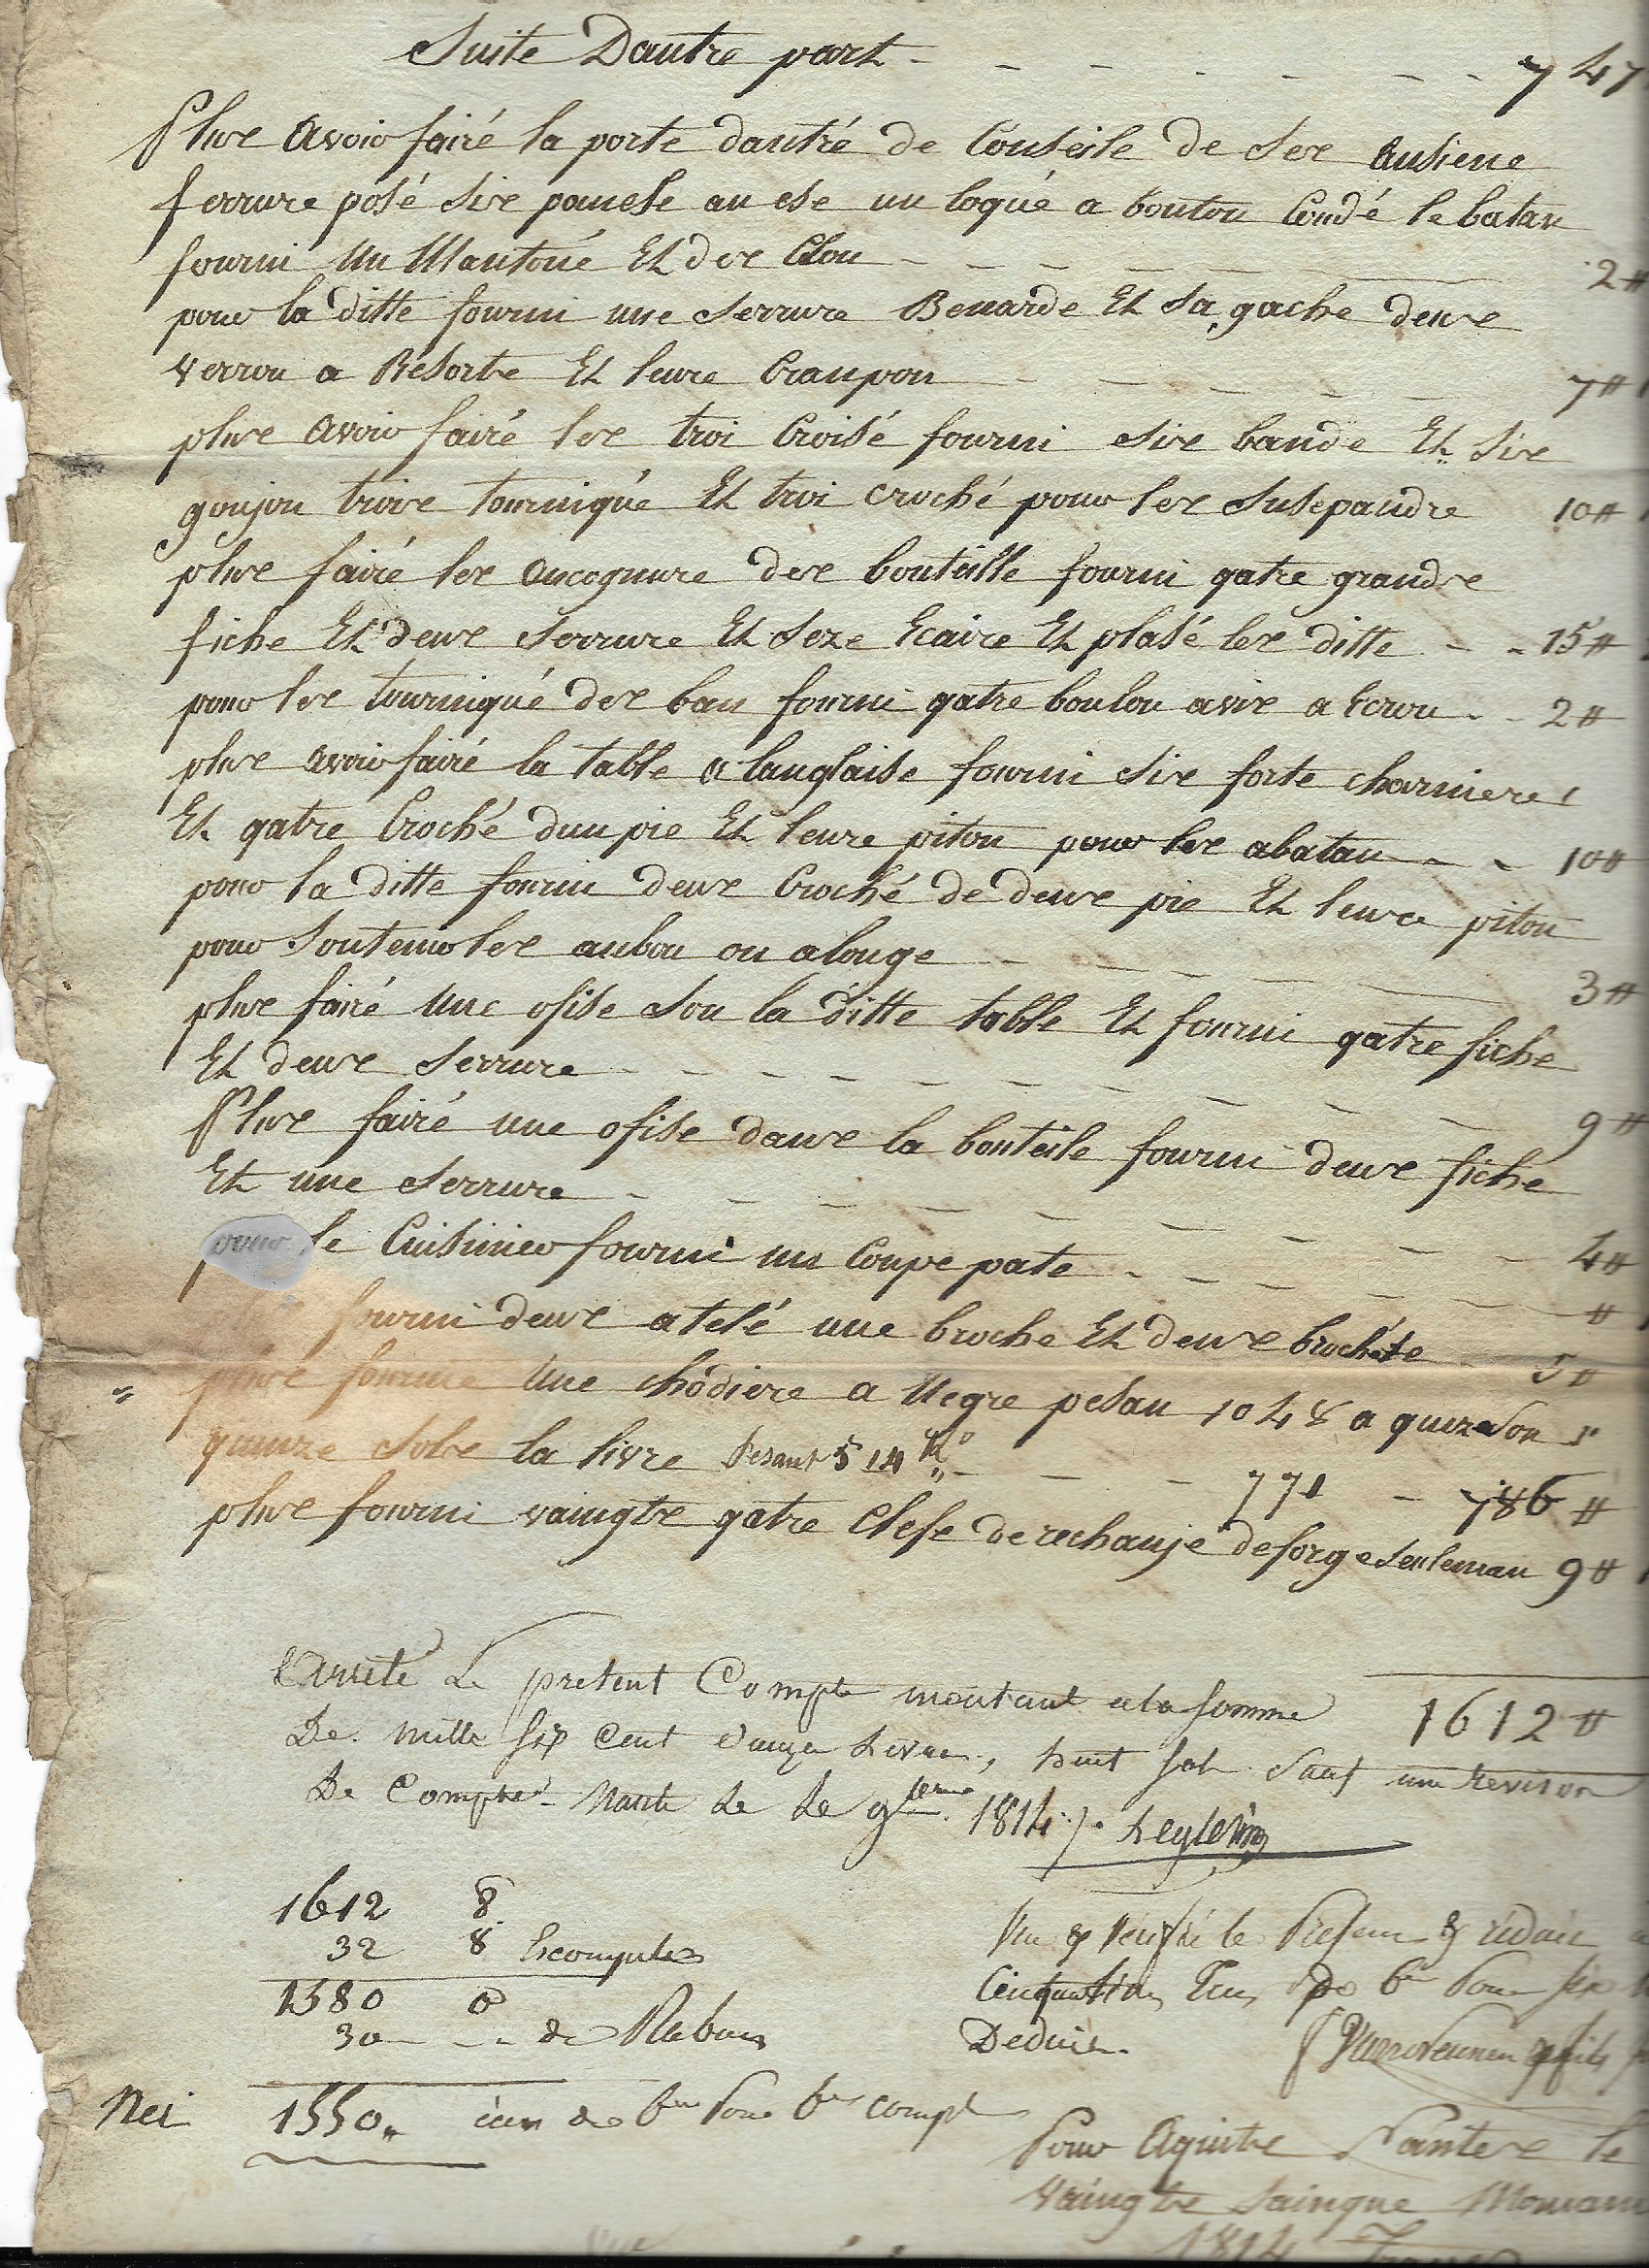 Suite Dautre part - - - - - - - 747
Plus avoir fairé la porte dantré de Conseile de Ses ansiene
ferrure posé sis pomele au ese un loqué a bouton Coudé le batan
fourni un Mantoné Et des Clou - - - - 2#
pour la ditte fourni une serrure Benarde Et sa gache deus
verrou a Résorte Et leurs Cranpon - - - - 7#
plus avoir fairé les troi Croisé fourni sis bande Et sis
goujon trois tourniqué Et troi croché pour les susepandre 10#
plus fairé les ancognure des bouteille fourni qatre grands
fiche Et deus serrure Et seze Ecaire Et plasé les ditte - - 15#
pour les tourniqué des ban fourni qatre boulon avis a Ecrou - - 2#
plus avoir fairé la table a langlaise fourni sis forte charniere
Et qatre Croché dun pie Et leurs piton pour les abatan - - 10#
pour la ditte fourni deus Croché de deus pie Et leurs piton
pour soutenir les aubou ou alonge - - - - 3#
plus fairé une ofise sou la ditte table Et fourni qatre fiche
Et deus serrure - - - - - - - 9#
Plus fairé une ofise dans la bouteile fourni deus fiche
Et une serrure - - - - - - - 4#
pour le Cuisinier fourni un Coupe pate - - - - #
fourni deus atelé une broche Et deus brochéte - 5#
plus fournie une chodiere a Negre pesan 1048 a quinze sou
quinze sols la livre Pesant 514 K° - - - 771 - 786 #
plus fourni vaingts qatre Clefs de rechanje de forge seuleman 9#
Arrete Le present Compte montant ala somme 1612#
De mille six Cent douze Livres, huit sols sauf une revision
De Compte Nante Le 9bre 1814
1612 8
32 8 Escompte
1580 0
30 - - de Rabais
Net 1550 " de Bon Pour Compt
Vu & Vérifié le Present & réduit
De Bon Pour six
Deduit.
Pour Aquitte Nantes le
Vaingts sainque
1814